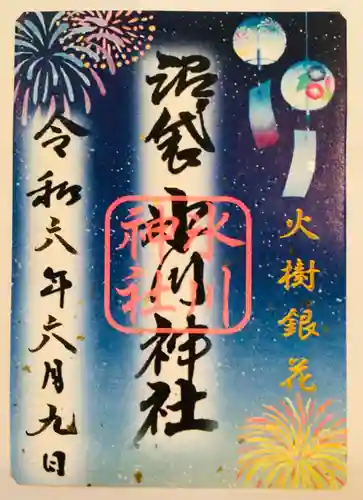 火樹銀花
沼袋氷川神社
氷川神社
令和六年六月九日